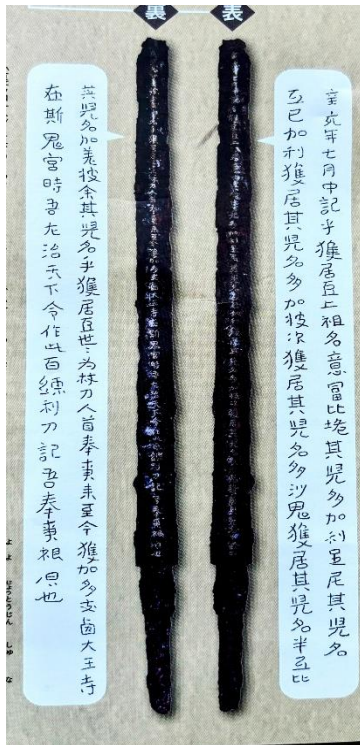 表
辛亥年七月中記乎獲居臣上祖名意富比垝其児多加利足尼其児名
弖已加利獲居其児名多加披次獲居其児名多沙鬼獲居其児名半弖比
裏
其児名加差披余其児名乎獲居臣世々為杖刀人首奉事来至今獲加多支鹵大王寺
在斯鬼宮時吾左治天下令作此百練利刀記吾奉事根原也
よ よ じょうとうじん しゅ な